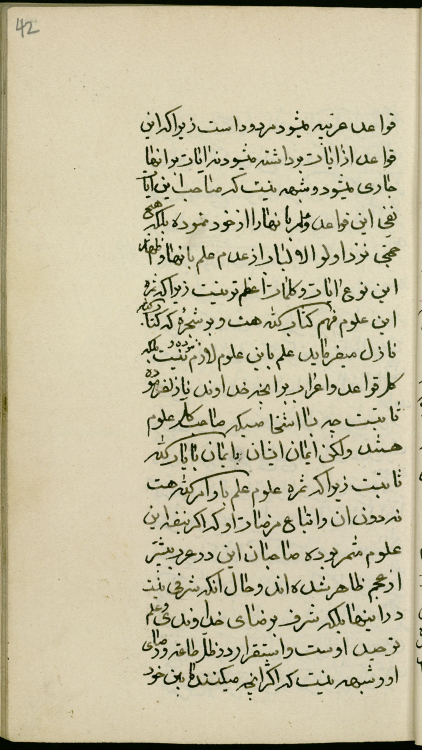 42
قواعد عربیه میشود مردود است زیرا که این
قواعد از ایات برداشته میشود نه ایات بر انها
جاری میشود و شبهه نیست که صاحب این ایات
نفی این قواعد و علم بانها را از خود نموده بلکه هیچ
حجتی نزد اولو الالباب از عدم علم بانها و
این نوع ایات و کلمات اعظم تر نیست زیرا که ثمره
این علوم فهم کتاب الله هست و بر شجره که کتاب الله
نازل میفرماید علم باین علوم لازم نبوده و نیست بلکه
کل قواعد و اعراب بر انچه خداوند نازل فرموده
ثابت چه بسا اشخاصیکه صاحب کل علوم
هستند ولکن ایمان ایشان بایمان بایات الله
ثابت زیرا که ثمره علوم علم باوامر الله هست
نه دون ان و اتباع مرضات او که اگر بنفسه این
علوم مثمر بوده صاحبان این در عرب بیشتر
از عجم ظاهر شده اند و حال انکه شرفی نیست
در اینها بلکه شرف برضای خداوندی و علم
توحید اوست و استقرار در ظل طاعة و رضای
او و شبهه نیست که اگر انچه میکنند دین خود